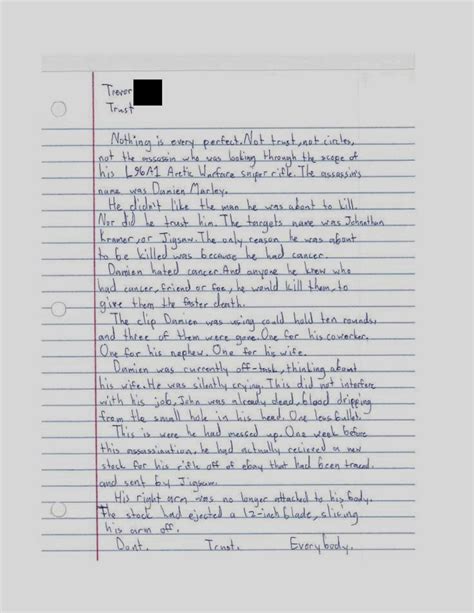 Trevor
Trust
Nothing is every perfect. Not trust, not circles,
not the assassin who was looking through the scope of
his L96A1 Arctic Warfare sniper rifle. The assassin's
name was Damien Marley.
He didn't like the man he was about to kill.
Nor did he trust him. The targets name was Johnathan
Kramer, or Jigsaw. The only reason he was about
to be killed was because he had cancer.
Damien hated cancer. And anyone he knew who
had cancer, friend or foe, he would kill them, to
give them the faster death.
The clip Damien was using could hold ten rounds,
and three of them were gone. One for his coworker.
One for his nephew. One for his wife.
Damien was currently off-task, thinking about
his wife. He was silently crying. This did not interfere
with his job. John was already dead, blood dripping
from the small hole in his head. One less bullet.
This is were he had messed up. One week before
this assassination, he had actually recieved a new
stock for his rifle off of ebay that had been traced
and sent by Jigsaw.
His right arm was no longer attached to his body.
The stock had ejected a 12-inch blade, slicing
his arm off.
Dont. Trust. Everybody.